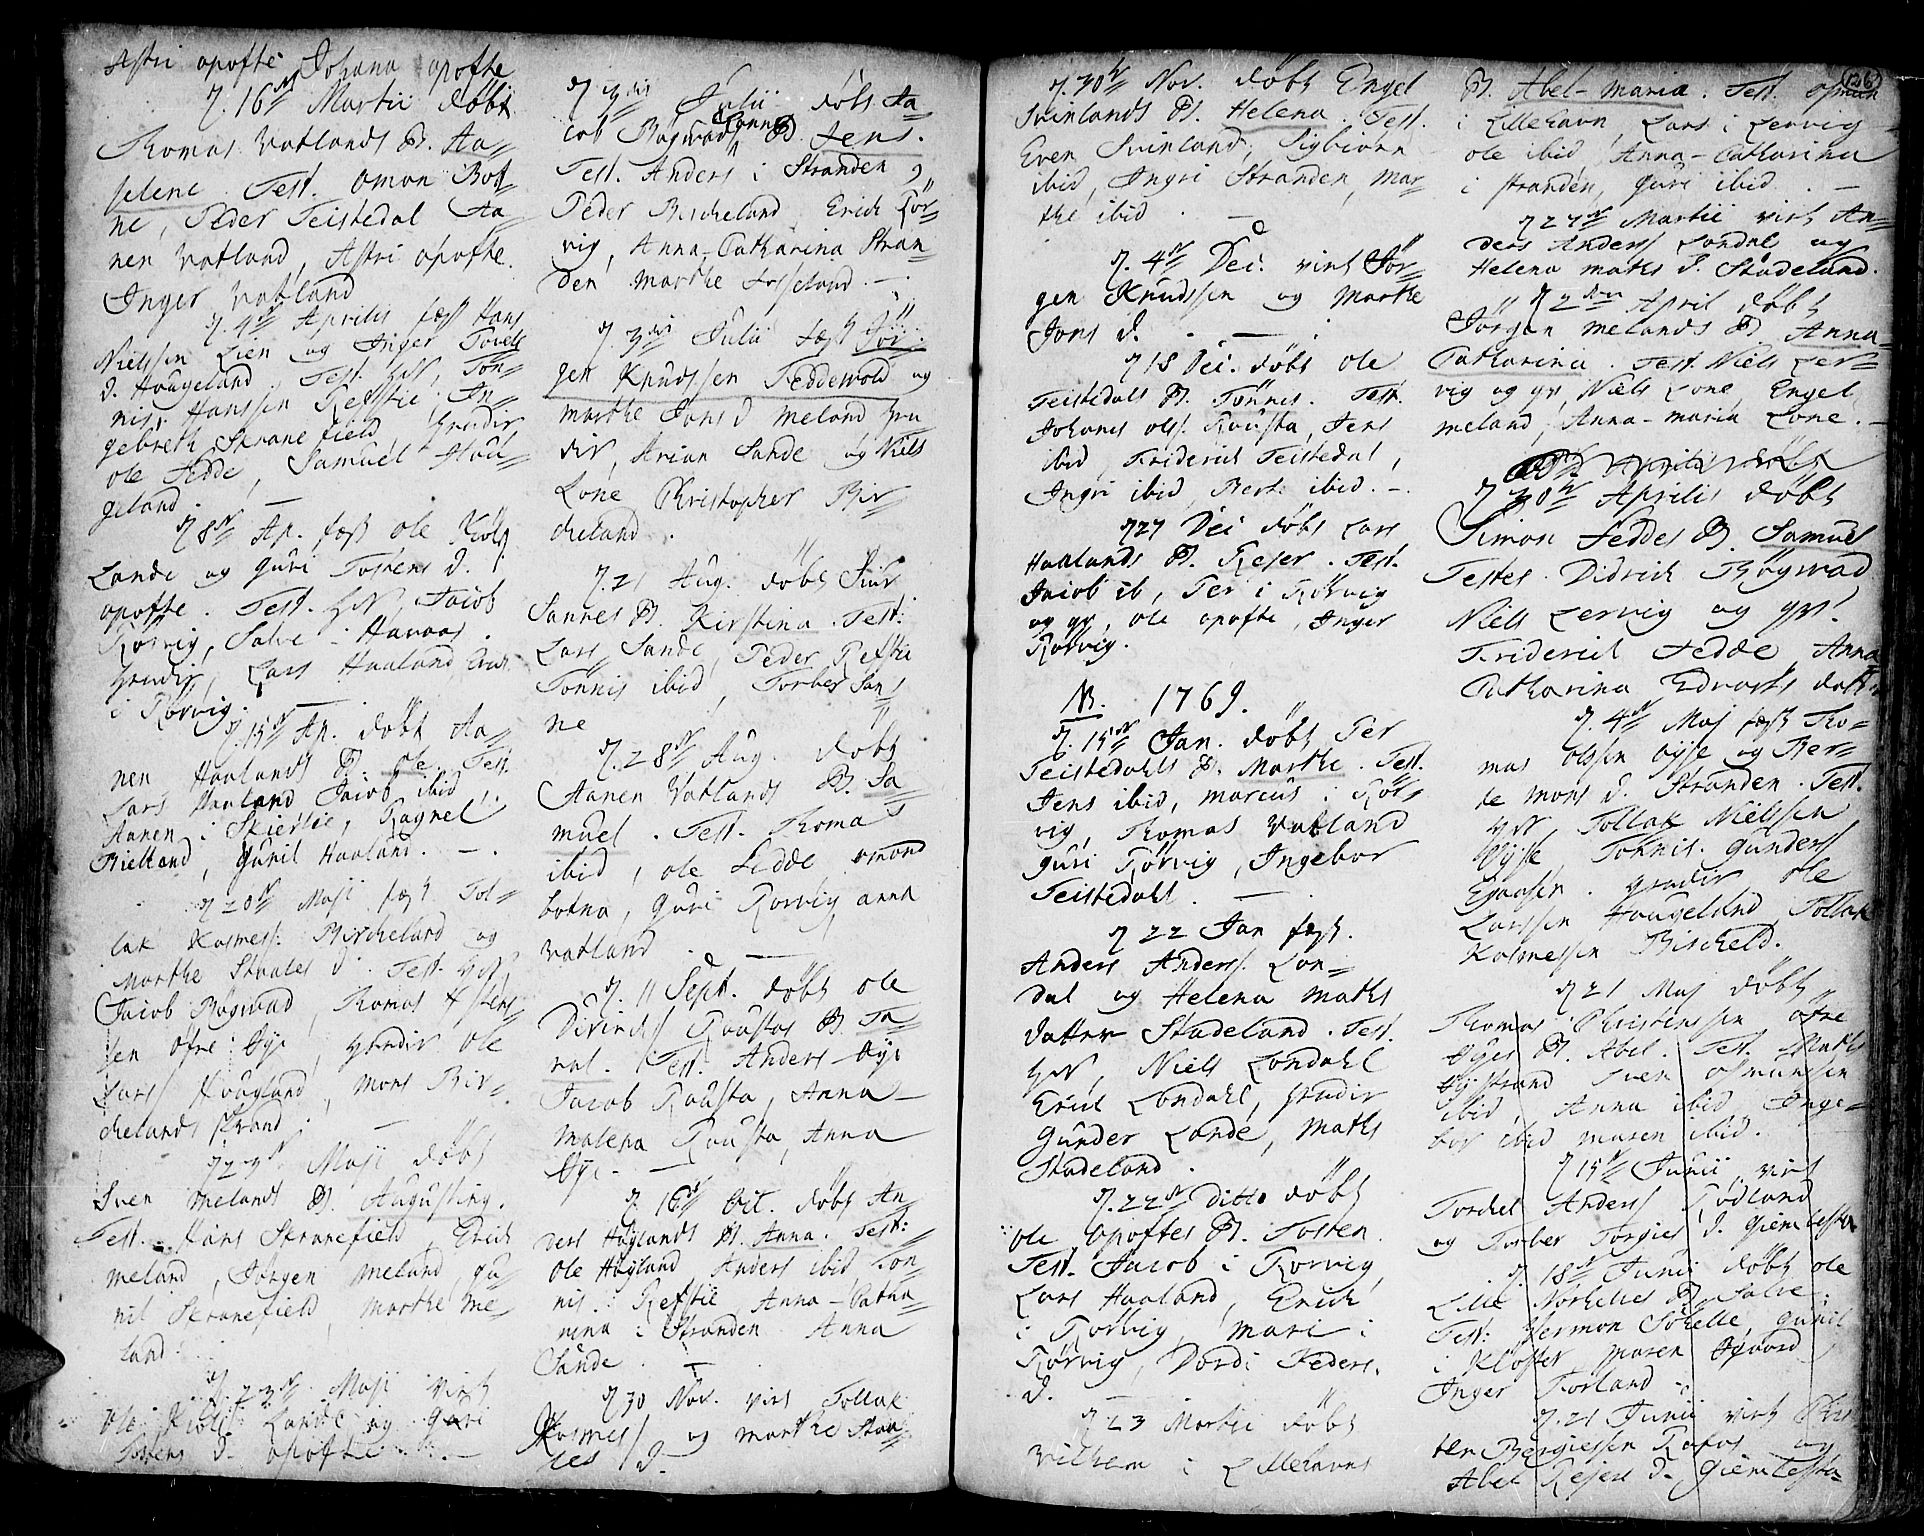 Astri opofte Johana opofte
d. 16de Martii døbt
Thomas Vatlands B. Aa=
selene. Test. Omon Bot=
ne, Peder Teistedal Aa=
nen Vatland, Astri opofte
Inger Vatland
d. 4de Aprilis fæst Hans
Nielssen Lien og Inger
D. Hougeland. Test. Ton=
nis Hanssen Refstie In=
gebreth Skranefield,
ole Fedde, Samuel Hou=
geland. —
d. 8de Ap. fæst ole
Lande og Guri Tostens D.
opofte. Test. Jacob
Rørvig, Salve i
Lars Haaland, Erich
i Rørvig. —
d. 15de Ap. døbt Aa=
nen Haalands B. ole. Test.
Lars Haaland Jacob ibid
Aanen i Skierlie, Ragnel
Bielland, Gunil Haaland. —
d. 20de Maji fæst Tol=
lak Kosmess: Bircheland og
Marthe Staales D. Test.
Jacob Røgwad, Thomas
sen øfre Øye, ole
Lars Hougland, Mons Bir=
chelands strand. —
Maji døbt
Sven Melands B. Augusting.
Test. Hans Skranefield, Erich
Meland, Jørgen Meland, Gu=
nil Skranefield, Marthe Me
land.
d. 23de Maji virt
ole Lande og Guri
Tostens D. opofte —
d. 3die Julii døbt Ja=
cob Røgwads B. Jens.
Test. Anders i Stranden,
Peder Bircheland, Erich Rør=
vig, Anna-Catharina Stran=
den Marthe Fosseland. —
d. 3die Julii fæst Jør=
gen Knudssen Feddewold og
Marthe Jons D Meland
Arian Sande og Niels
Lone Christopher Bir=
cheland.
d. 21 Aug. døbt Siur
Sannes B. Kirstina. Test:
Lars Sande, Peder Refstie
Tonnis ibid, Torber San=
ne
d. 28de Aug. døbt
Aanen Vatlands B. Sa
muel. Test. Thomas
ibid, ole Fedde omond
botna, Guri Rorvig anna
vatland. —
d. 11 Sept. døbt ole
Divirichs Raustas B. Ta=
ral. Test. Anders Øye
Jacob Rausta, Anna—
Malena Rausta, Anna
Øye. —
d. 16de Oct. døbt An=
ders Høylands B. Anna. Test:
Ole Høyland Anders ibid Ton=
nis i Refstie Anna-Catha=
rina i Stranden Anna
Sande. —
d 30 Nov. virt Tollak
Kosmess og Marthe Staa=
les D.
d. 30te Nov. døbt Engel
Svinlands B. Helena. Test.
Even Svinland, Sigbiørn
ibid, Ingri Stranden, Mar=
the ibid. —
d. 4de Dec. virt Jør=
gen Knudssen og Marthe
Jons D. —
d 18 Dec. døbt ole
Teistedals B. Tønnes. Test.
Johanes olss. Rausta, Jens
ibid, Friderich Teistedal,
Ingri ibid, Bert. ibid. —
d 27 Dec døbt Lars
Haalands B. Rejer. Test.
Jacob ib, Per i Rørvig
og, ole opofte, Inger
Rørvig.
NB. 1769.
d. 15de Jan. døbt Per
Teistedahls B. Marthe. Test.
Jens ibid, Marcus i Rør=
vig, Thomas Vatland
Guri Rørvig, Ingebor
Teistedahl. —
d 22 Jan fæst.
Anders Anderss. Lon=
dal og Helena Maths
datter Stadeland. Test.
Niels Londahl
Erich Londahl,
Gunder Lande, Maths
Stadeland.
d. 22de ditto døbt
ole opoftes B. Tosten
Test. Jacob i Rorvig
Lars Haaland, Erich
i Rorvig, Mari i
Rørvig, Dordi Peders
D. —
d 23 Martii døbt
Vilhem i Lillehavns
126
B. Abel-Maria. Test. osmun
i Lillehavn, Lars i Lervig
ole ibid, Anna-Catharina
i stranden, Guri ibid. —
d 27de Martii virt An=
ders Anderss Londal og
Helena Maths D. Stadeland.
d 2den April døbt
Jørgen Melands B. Anna=
Catharina. Test. Niels Ler=
vig og, Niels Lone, Engel
Meland, Anna-Maria Lone. —
d 30te Aprilis døbt
Simon Feddes B. Samuel
Testes. Didrich Røgwad
Niels Lervig og
Friderich Fedde Anna
Catharina
d. 4de Maj fæst Tho=
mas olssen øyse og Ber=
te Mons D. Stranden. Test.
Tollak Nielssen
Tonnis Gunders
ole
Larssen Hougeland Tollak
Kosmessen Bircheld.
d 21 Maj døbt
Thomas Christenssen øfre
Øyes B Abel. Test. Maths
Øystrand Sven osmundsen
ibid, Anna ibid Inge=
bor ibid Maren ibid.
d 15de Junii virt
Torkel Anderss Rødland
og Torber Torgies D. Giemlesta
d. 18de Junii døbt ole
Lille B. Salve.
Test: Hermon Gunil
i Kloster, Maren
Inger Torland —
d. 21 Junii virt Chri
sten Bergiessen og
Abel Rejers D. Giemlesta